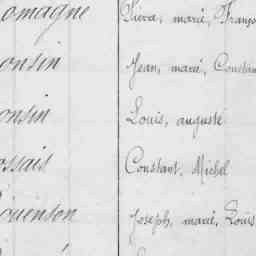 omagne Pierre, marié, Franço
onsin Jean, marié, Constan
onsin Louis, auguste
ossais Constant, Michel
ouenson Joseph, marié, Louis